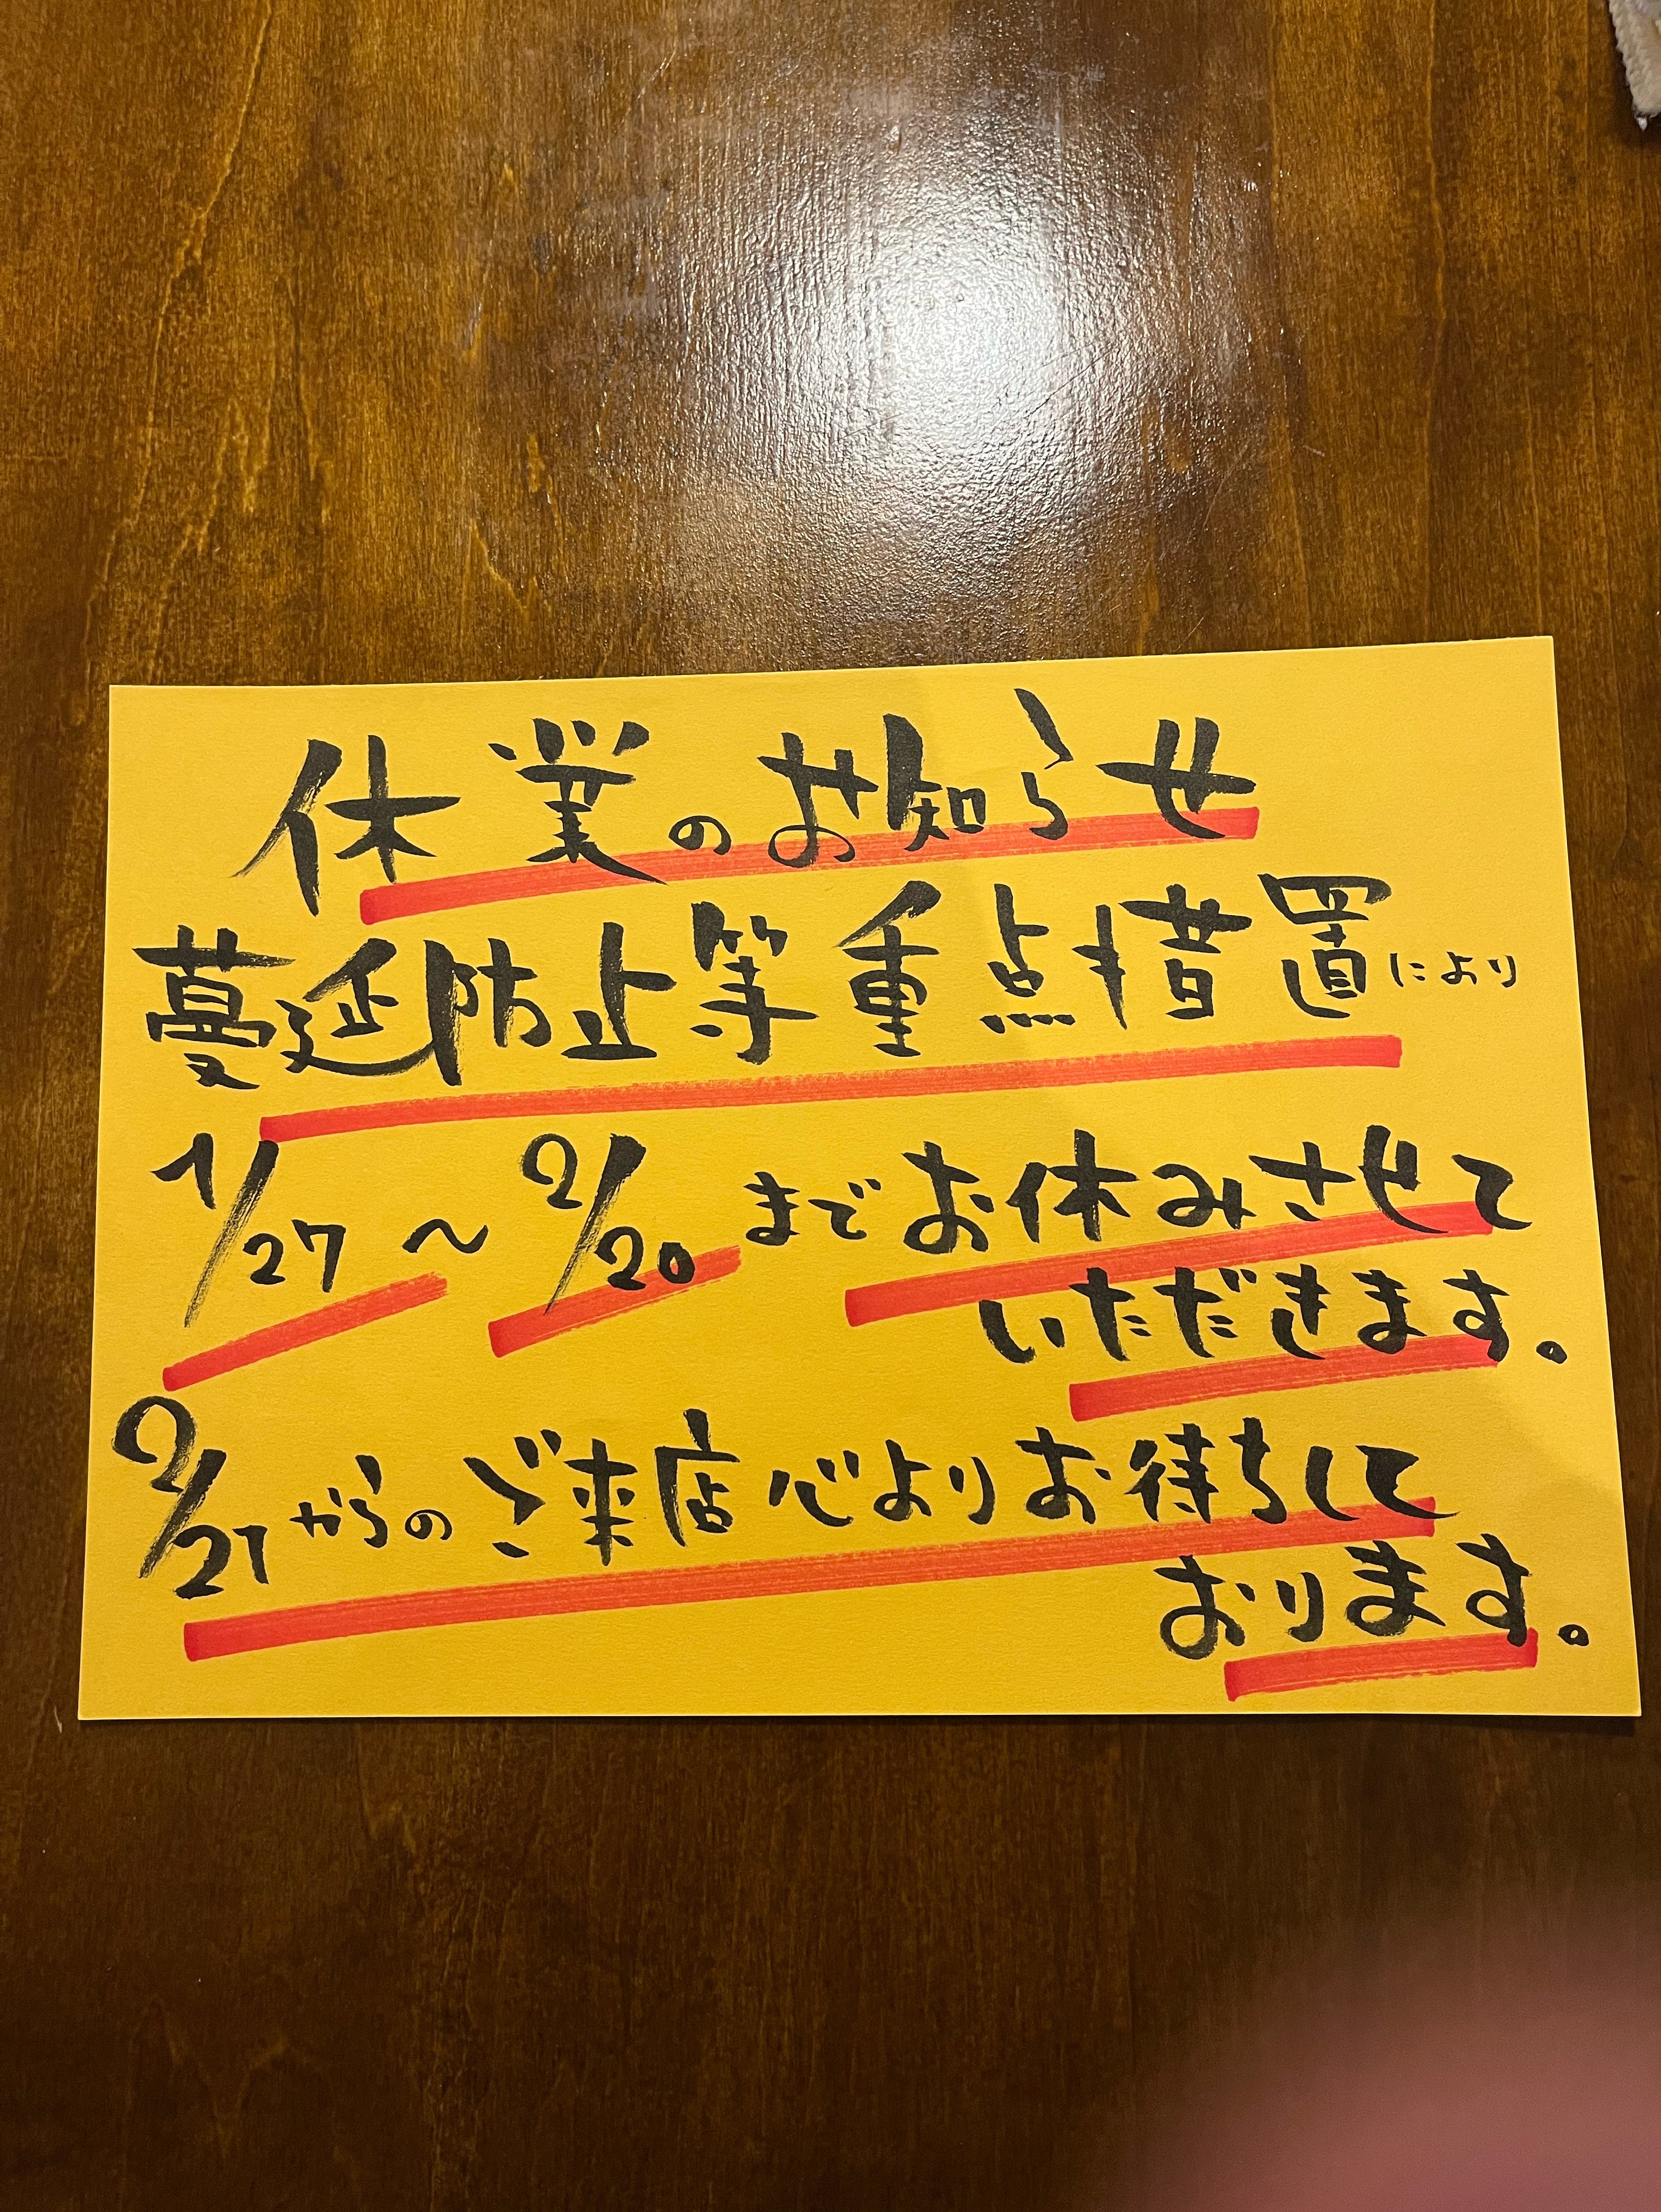 休業のお知らせ
蔓延防止等重点措置により
1/27〜2/20までお休みさせて
いただきます。
2/21からのご来店心よりお待ちして
おります。